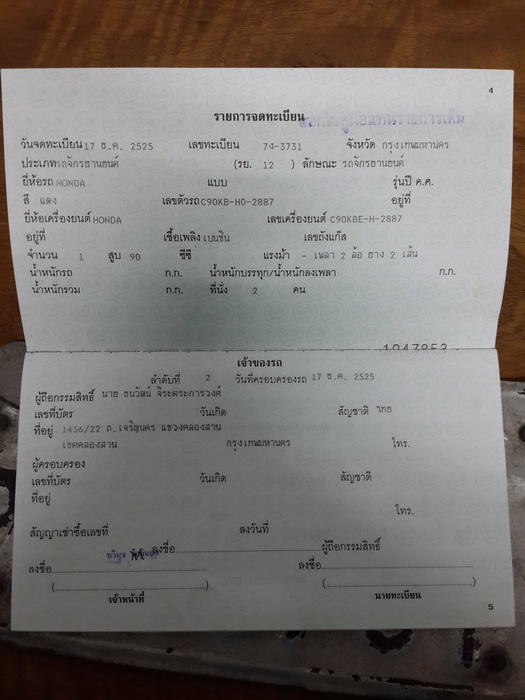 4
รายการจดทะเบียน
วันจดทะเบียน 17 ธ.ค. 2525 เลขทะเบียน 7ง-3731 จังหวัด กรุงเทพมหานคร
ประเภท รถจักรยานยนต์ (รย. 12 ) ลักษณะ รถจักรยานยนต์
ยี่ห้อรถ HONDA แบบ รุ่นปี ค.ศ.
สี แดง เลขตัวรถ C90KB-HO-2887 อยู่ที่
ยี่ห้อเครื่องยนต์ HONDA เลขเครื่องยนต์ C90KBE-H-2887
อยู่ที่ เชื้อเพลิง เบนซิน เลขถังแก๊ส
จำนวน 1 สูบ 90 ซีซี แรงม้า - เพลา 2 ล้อ ยาง 2 เส้น
น้ำหนักรถ ก.ก. น้ำหนักบรรทุก/น้ำหนักลงเพลา ก.ก.
น้ำหนักรวม ก.ก. ที่นั่ง 2 คน
เจ้าของรถ
ลำดับที่ 2 วันที่ครอบครองรถ 17 ธ.ค. 2525
ผู้ถือกรรมสิทธิ์ นาย ธนวัฒน์ จิระตระการวงศ์
เลขที่บัตร วันเกิด สัญชาติ ไทย
ที่อยู่ 1456/22 ถ.เจริญนคร แขวงคลองสาน
เขตคลองสาน กรุงเทพมหานคร โทร.
ผู้ครอบครอง
เลขที่บัตร วันเกิด สัญชาติ
ที่อยู่
โทร.
สัญญาเช่าซื้อเลขที่ ลงวันที่
ลงชื่อ ผู้ถือกรรมสิทธิ์
ลงชื่อ ลงชื่อ
( ) ( )
เจ้าหน้าที่ นายทะเบียน
5